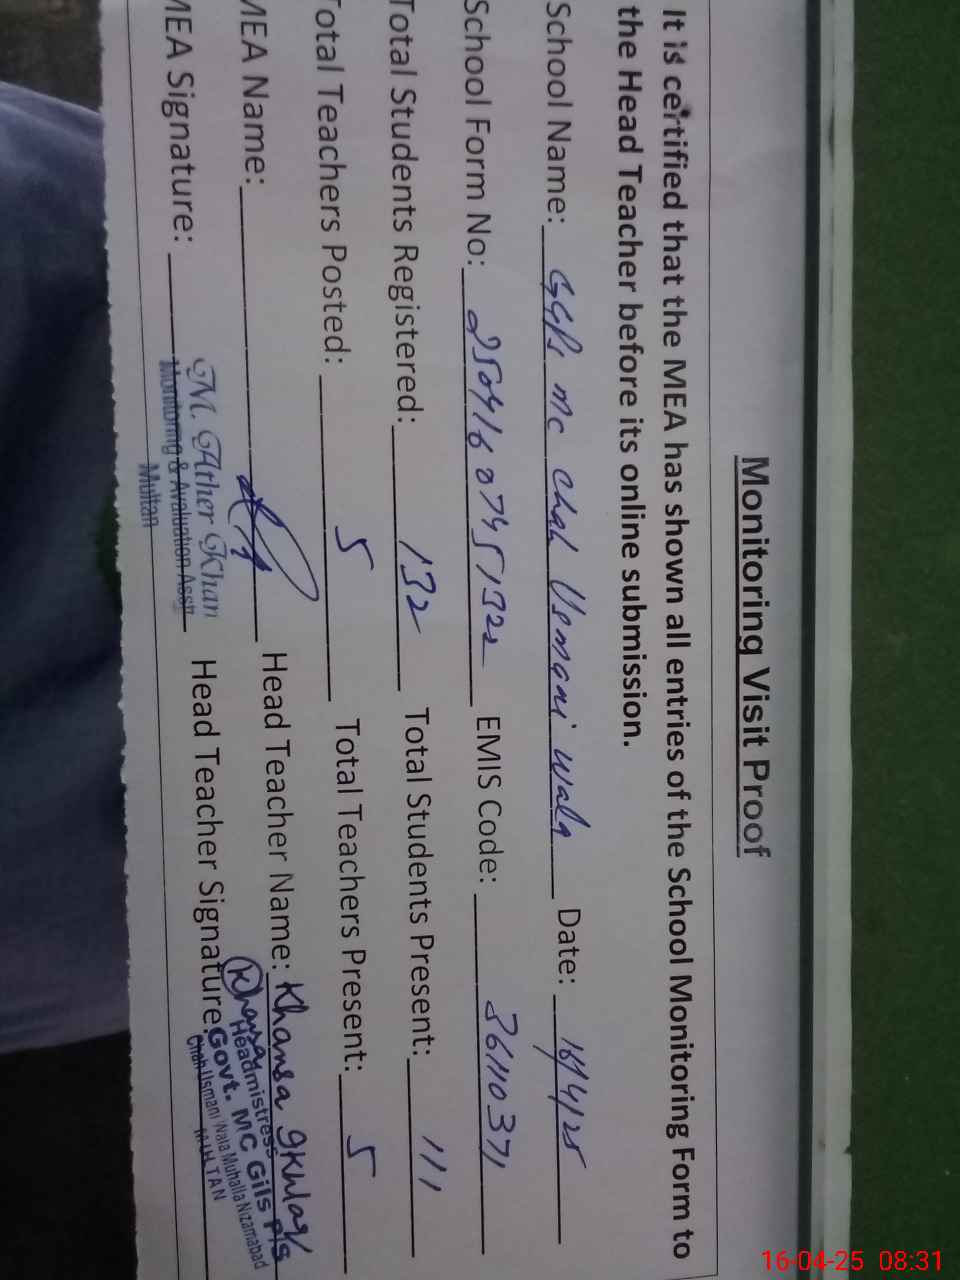 Monitoring Visit Proof
It is certified that the MEA has shown all entries of the School Monitoring Form to
the Head Teacher before its online submission.
School Name: GGPS MC chah Usmani wala Date: 16/4/25
School Form No: EMIS Code: 36110371
Total Students Registered: 132 Total Students Present: 111
Total Teachers Posted: 5 Total Teachers Present: 5
MEA Name: Head Teacher Name: Khansa
MEA Signature: Head Teacher Signature:
M. Ather Khan
Monitoring & Avaluation Asstt
Multan
Khansa
Headmistress
Govt. MC Gils P/S
Chah Usmani Wala Muhalla Nizamabad
MULTAN
16-04-25 08:31